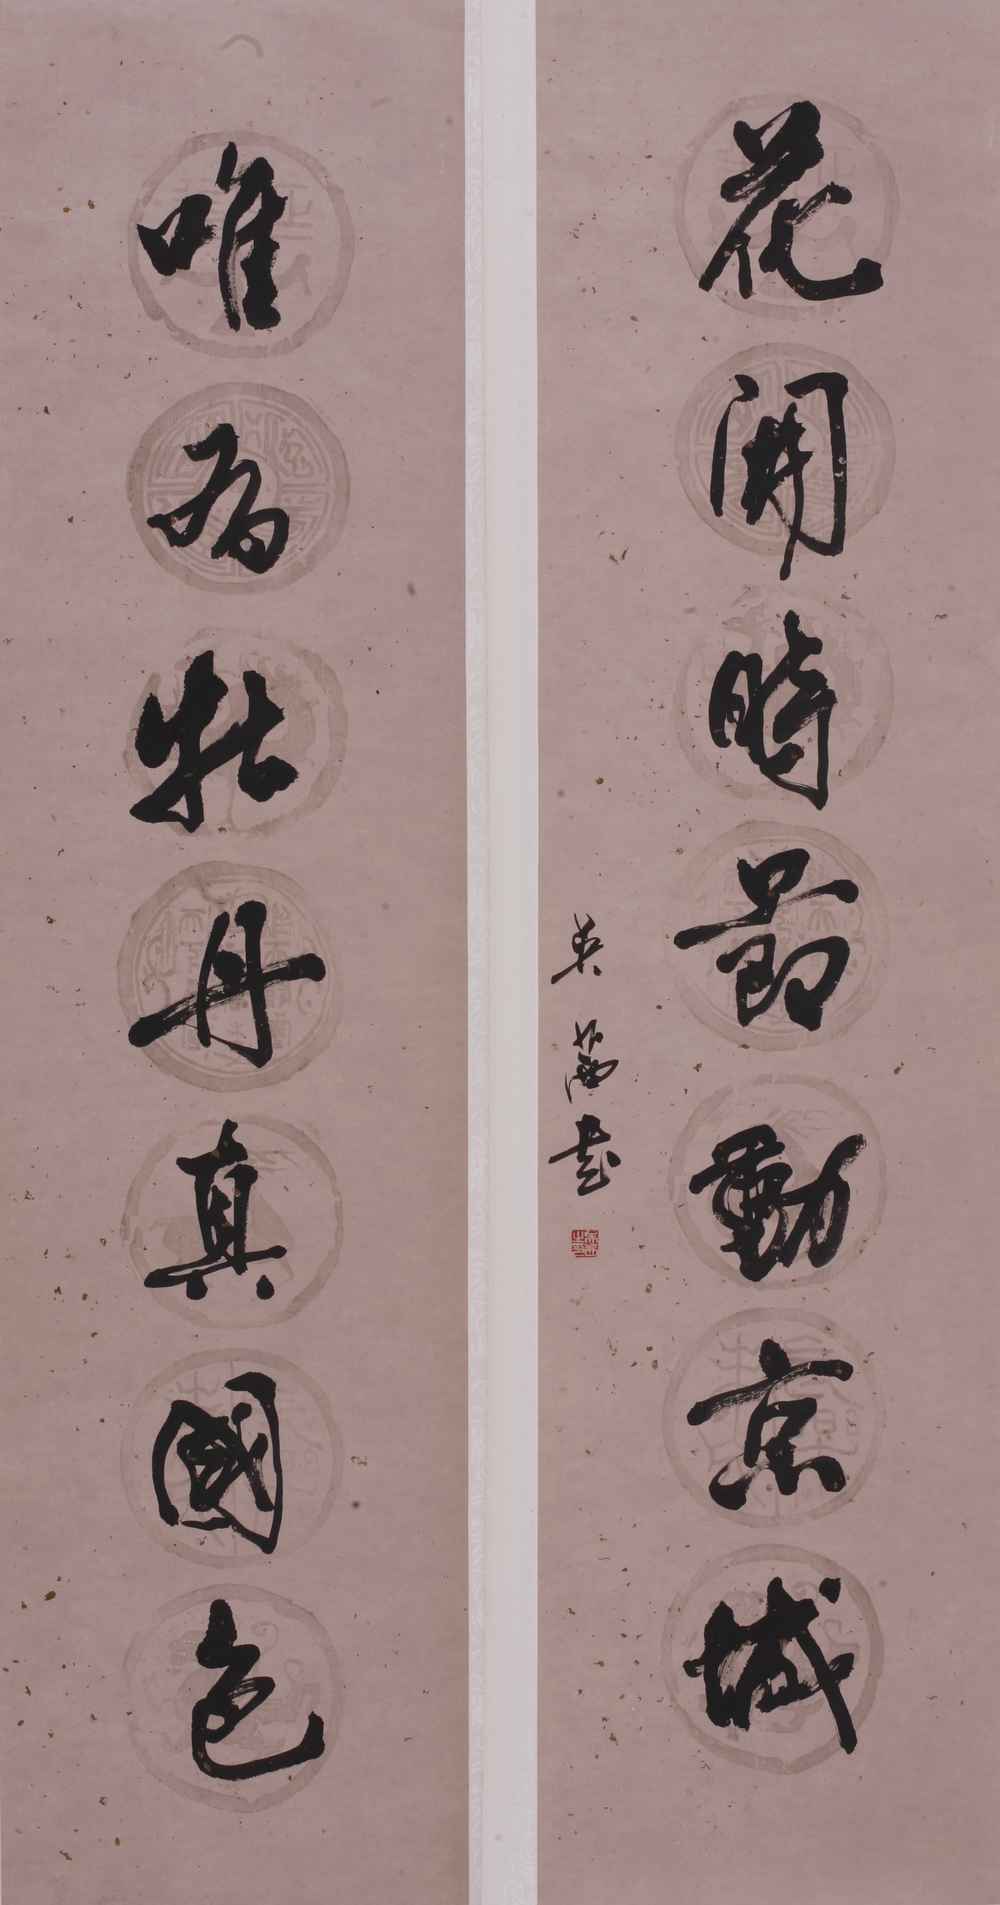 花開時節動京城
唯有牡丹真國色
英茜書